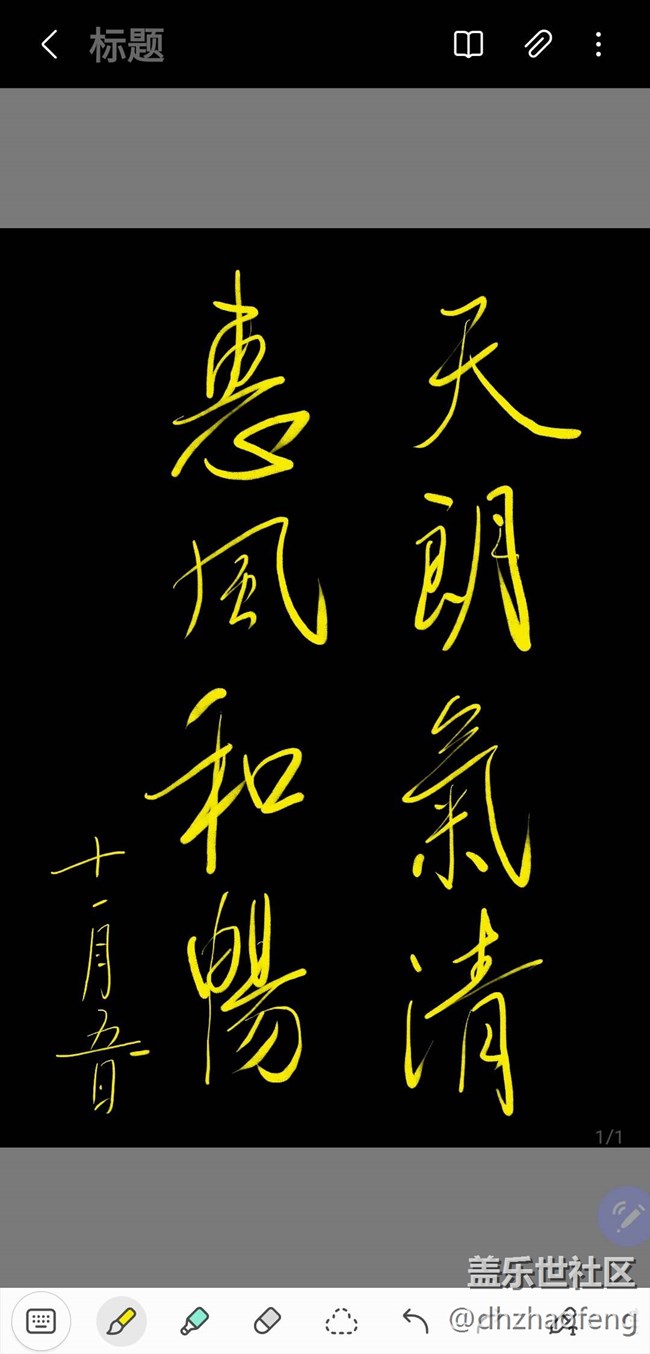 标题
天朗氣清
惠風和暢
十一月五日
1/1
盖乐世社区
@dhzhaofeng